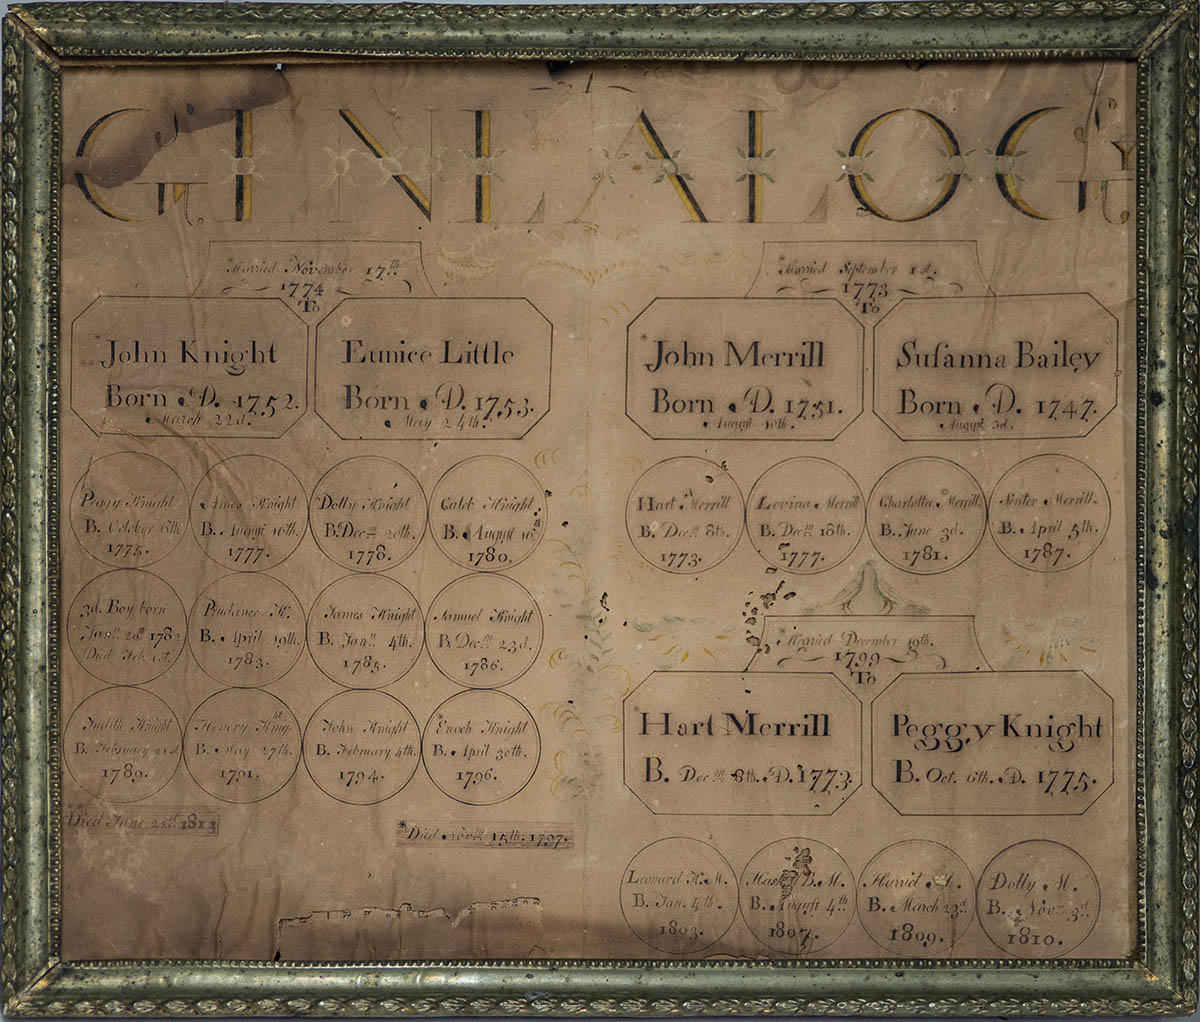 A
GENEALOGY
Married November 17th
1774
To
John Knight
Born A.D. 1752.
March 22d.
Eunice Little
Born A.D. 1753.
May 24th.
Peggy Knight
B. October 6th
1775.
Amos Knight
B. August 16th.
1777.
Dolly Knight
B. Decm 20th.
1778.
Caleb Knight
B. August 16th
1780.
3d. Boy born
Jany 20th 1782
Died Feb. 1st.
Prudance K.
B. April 19th.
1783.
James Knight
B. Jany 4th.
1785.
Samuel Knight
B. Decm 23d.
1786.
Judith Knight
B. February 21st
1789.
Henery Knight
B. May 27th.
1791.
John Knight
B. February 4th.
1794.
Enoch Knight
B. April 30th.
1796.
Died June 25th 1813
*Died Novm 15th. 1797.
Married September 1st.
1773
To
*John Merrill
Born A.D. 1751.
August 10th.
Susanna Bailey
Born A.D. 1747.
August 3d.
Hart Merrill
B. Decm 8th.
1773.
Lovina Merrill
B. Decm 18th.
1777.
Charlotta Merrill
B. June 3d.
1781.
Senter Merrill
B. April 5th.
1787.
Married December 19th.
1799
To
Hart Merrill
B. Decm 8th. A.D. 1773.
Peggy Knight
B. Oct. 6th. A.D. 1775.
Leonard K. M.
B. Jan. 4th.
1803.
B. M.
B. August 4th
1807.
Harriet M.
B. March 23d
1809.
Dolly M.
B. Novm 3d
1810.